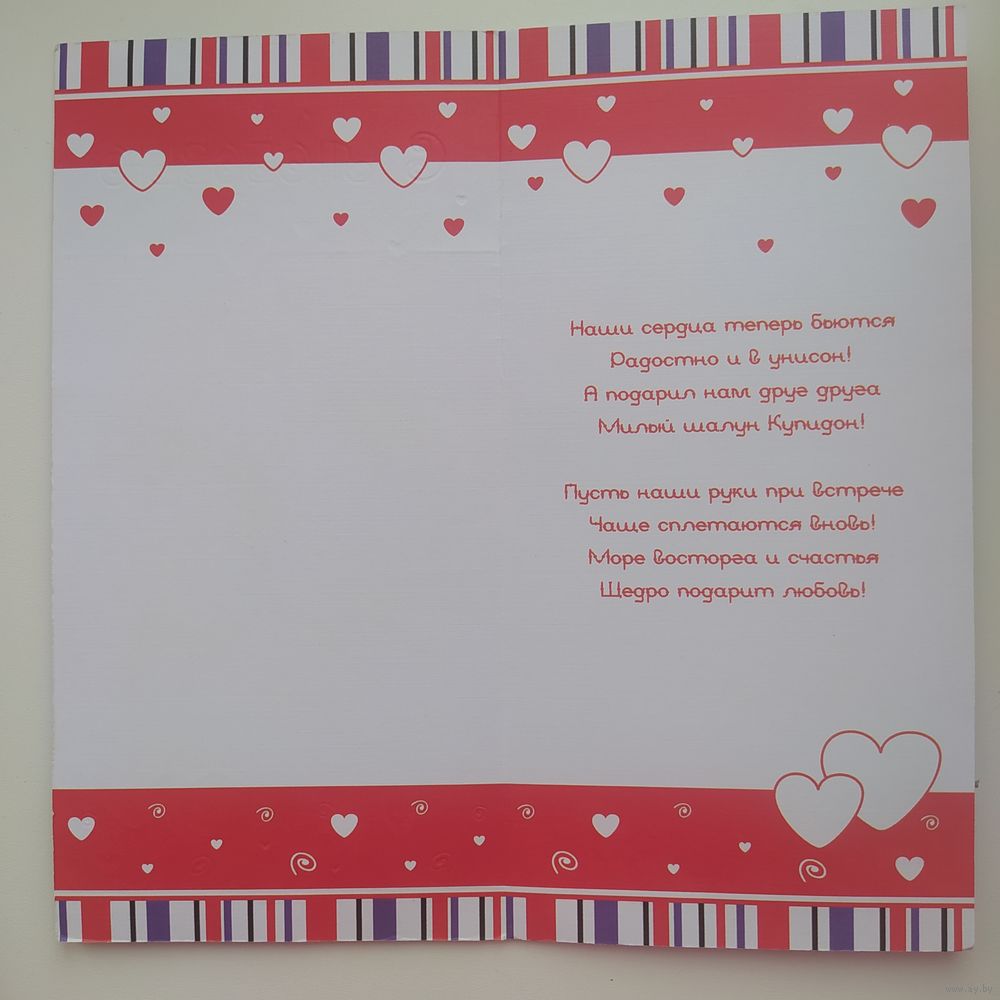 Наши сердца теперь бьются
Радостно и в унисон!
А подарил нам друг друга
Милый шалун Купидон!
Пусть наши руки при встрече
Чаще сплетаются вновь!
Море восторга и счастья
Щедро подарит любовь!
www.ay.by